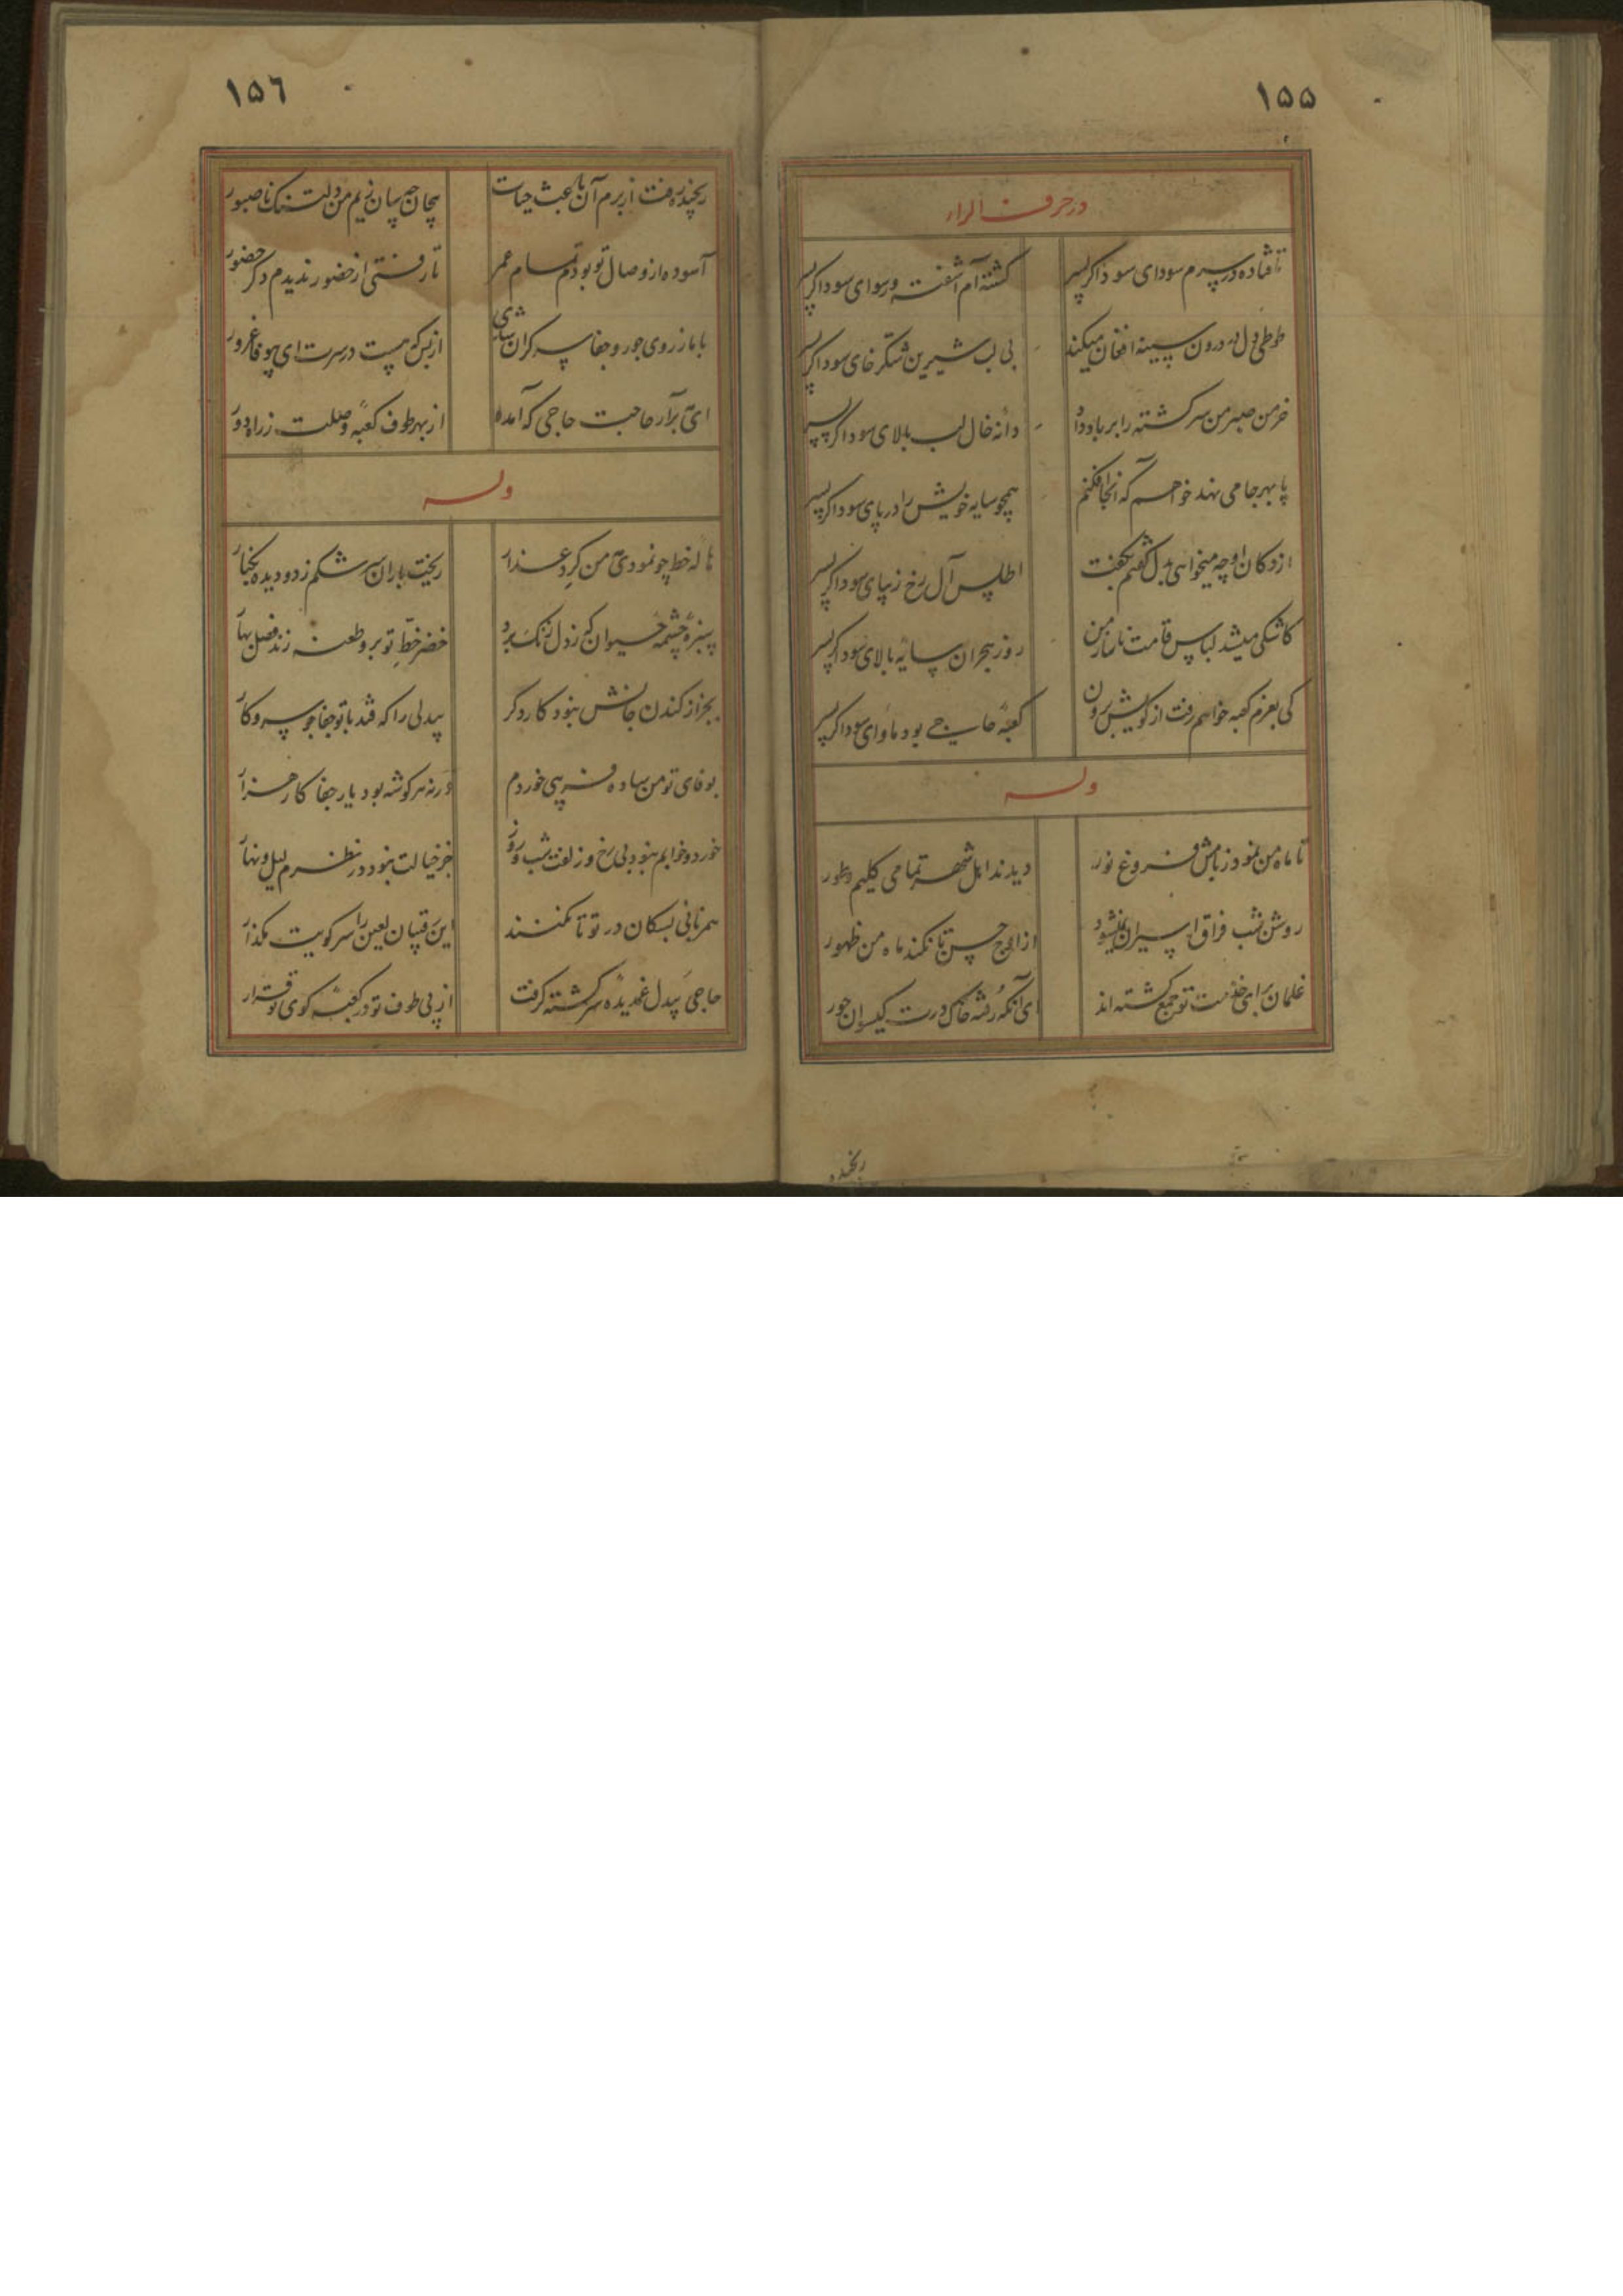 ١٥٥
در حرف الراء
تا فتاده در سرم سودای سوداگر پسر
گشته‌ام آشفته و رسوای سوداگر پسر
طوطی دل در درون سینه افغان میکند
بی لب شیرین شکر خای سوداگر پسر
خرمن صبر من سرگشته را بر باد داد
دانه خال لب بالای سوداگر پسر
پا بهر جا می نهد خواهم که آنجا افکنم
همچو سایه خویش را در پای سوداگر پسر
از دکان او چه میخواهی بدل گفتم بگفت
اطلس آل رخ زیبای سوداگر پسر
کاشکی میشد لباس قامت من
روز هجران سایه بالای سوداگر پسر
کی بعزم کعبه خواهم رفت از کویش برون
کعبه حاجی بود ماوای سوداگر پسر
وله
تا ماه من نمود ز بامش فروغ نور
دیدند اهل شهر تمامی کلیم و طور
روشن شب فراق اسیران نمیشود
از اوج حسن تا نکند ماه من ظهور
غلمان برای خدمت تو جمع گشته اند
ای آنکه رفته خاک درت گیسوان حور
رنجیده
١٥٦
رنجیده رفت از برم آن باعث حیات
بیجان چه سان زیم من دلتنگ ناصبور
آسوده از وصال تو بودم تمام عمر
تا رفتی از حضور ندیدم دگر حضور
با ما ز روی جور و جفا سر گران شدی
از بس که هست در سرت ای بیوفا غرور
ای برآر حاجت حاجی که آمده
از بهر طوف کعبه وصلت ز راه دور
وله
هاله خط چو نمودی مه من گرد عذار
ریخت باران سرشکم ز دو دیده بکنار
سبزه چشمه حیوان که ز دل زنگ برد
خضر خط تو برو طعنه زند فصل بهار
بجز از کندن جانش نبود کار دگر
بیدلی را که فتد با تو جفا جو سر و کار
بوفای تو من ساده فریبی خوردم
ورنه هر گوشه بود یار جفا کار هزار
خورد و خوابم نبود بی رخ و زلفت شب و روز
جز خیالت نبود در نظرم لیل و نهار
همزبانی بسگان در تو تا نکنند
این رقیبان لعین را سر کویت مگذار
حاجی بیدل غمدیده سرگشته گرفت
از پی طوف تو در کعبه کوی تو قرار